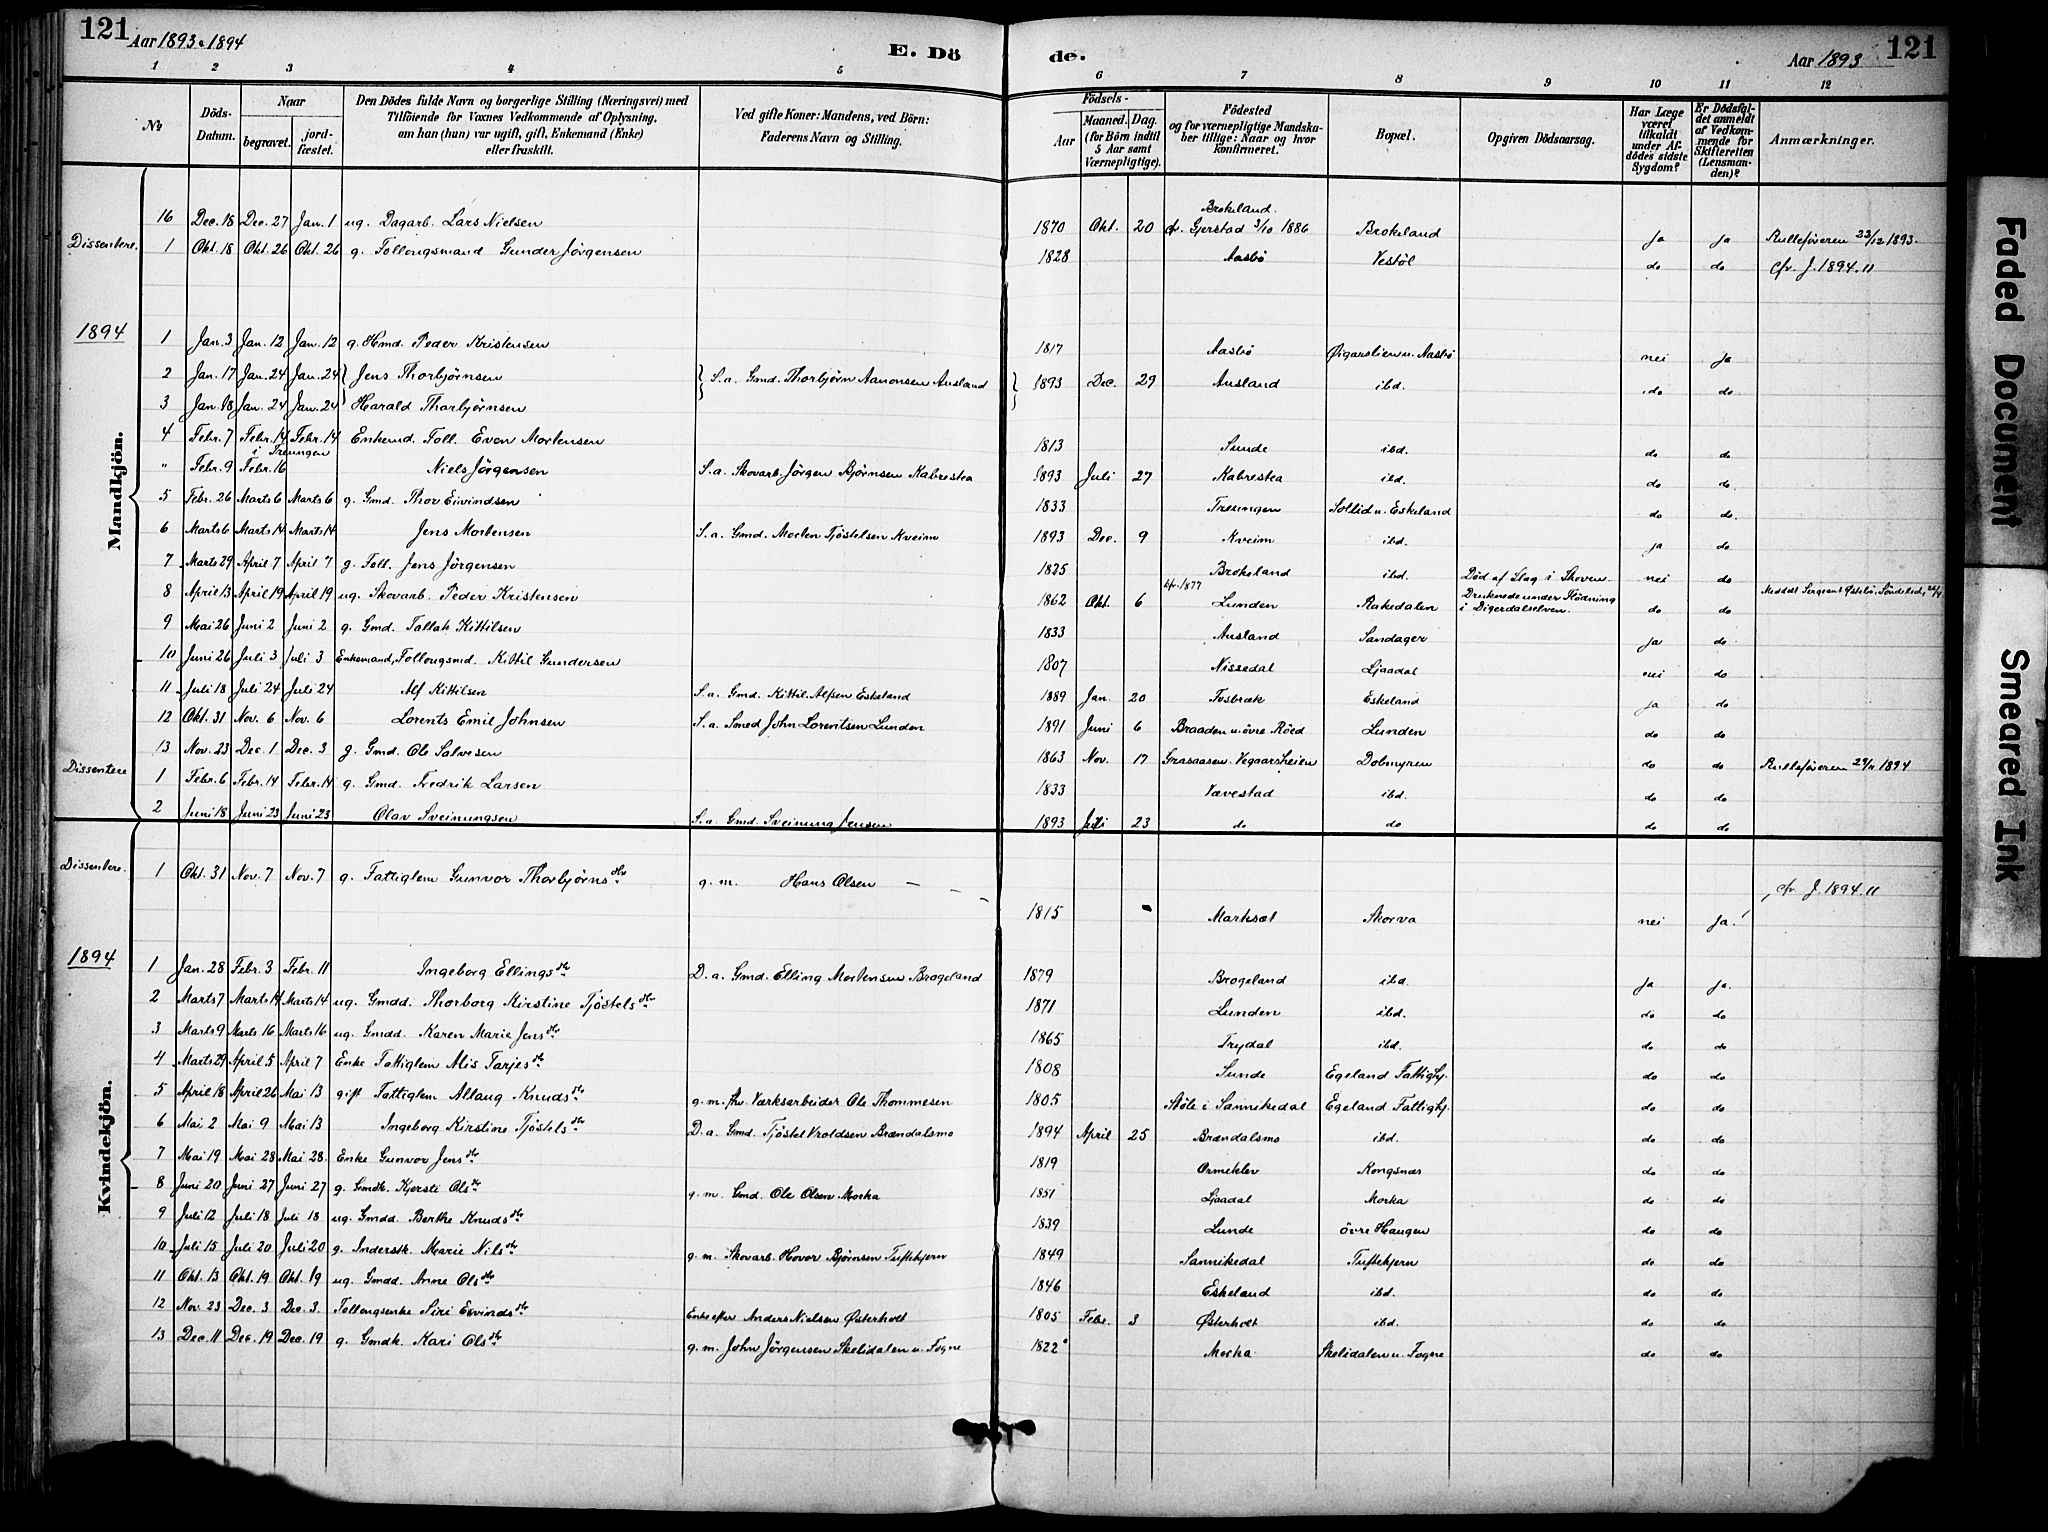 121
Aar 1893 & 1894
E. Dö
de.
Aar 1893
121
1 2 3 4 5 6 7 8 9 10 11 12
No
Döds-Datum.
Naar
begravet.
jordfæstet.
Den Dödes fulde Navn og borgerlige Stilling (Næringsvei) med Tilföiende for Voxnes Vedkommende af Oplysning, om han (hun) var ugift, gift, Enkemand (Enke) eller fraskilt.
Ved gifte Koner: Mandens, ved Börn: Faderens Navn og Stilling.
Födsels-
Aar
Maaned. Dag.
(for Börn indtil 5 Aar samt Værnepligtige).
Födested
og for værnepligtige Mandskaber tillige: Naar og hvor konfirmeret.
Bopæl.
Opgiven Dödsaarsag.
Har Læge været tilkaldt under Afdödes sidste Sygdom?
Er Dödsfaldet anmeldt af Vedkommende for Skifteretten (Lensmanden)?
Anmærkninger.
16 Dec. 18 Dec. 27 Jan. 1 ug. Dagarb. Lars Nielsen 1870 Okt. 20 Brokeland. cf. Gjerstad 3/10 1886 Brokeland ja ja Rulleføreren 23/12 1893.
Dissentere. 1 Okt. 18 Okt. 26 Okt. 26 g. Follaugsmand Gunder Jörgensen 1828 Aasbø Vestöl do do Cfr. J. 1894. 11
1894
Mandkjön.
1 Jan. 3 Jan. 12 Jan. 12 g. Hmd. Peder Kristensen 1817 Aasbø Øigarslien u. Aasbø nei ja
2 Jan. 17 Jan. 24 Jan. 24 Jens Thorbjörnsen S. a. Gmd. Thorbjörn Aanonsen Ausland 1893 Dec. 29 Ausland ibd. do do
3 Jan. 18 Jan. 24 Jan. 24 Harald Thorbjörnsen
4 Febr. 7 Febr. 14 Febr. 14 Enkemd. Foll. Even Mortensen 1813 Sunde ibd. do do
i Treungen
" Febr. 9 Febr. 16 Niels Jörgensen S. a. Skovarb. Jörgen Bjørnsen Kabrestea 1893 Juli 27 Kabrestea ibd. do do.
5 Febr. 26 Marts 6 Marts 6 g. Gmd. Thor Eivindsen 1833 Treungen Sollid u. Eskeland do do.
6 Marts 6 Marts 14 Marts 14 Jens Mortensen S. a. Gmd. Morten Tjöstelsen Kveim 1893 Dec. 9 Kveim ibd. ja do
7 Marts 29 April 7 April 7 g. Foll. Jens Jörgensen 1825 Brokeland ibd. Död af Slag i Skoven. nei do
8 April 13 April 19 April 19 ug. Skovarb. Peder Kristensen 1862 Okt. 6 1877 Lunden Rakedalen Druknede under Flödning i Digerdalselven. do do Meddelt Sergeant Østebø, Söndeled,
9 Mai 26 Juni 2 Juni 2 g. Gmd. Tallak Kittilsen 1833 Ausland Sandager ja do
10 Juni 26 Juli 3 Juli 3 Enkemand, Follaugsmd. Kittil Gundersen 1807 Nissedal Ljaadal nei do
11 Juli 18 Juli 24 Juli 24 Alf Kittilsen S. a. Gmd. Kittil Alfsen Eskeland 1889 Jan. 20 Fosbræk Eskeland ja do
12 Okt. 31 Nov. 6 Nov. 6 Lorents Emil Johnsen S. a. Smed John Lorentsen Lunden 1891 Juni 6 Braaden u. övre Röed Lunden do do
13 Nov. 23 Dec. 1 Dec. 3 g. Gmd. Ole Salvesen 1863 Nov. 17 Grasaasen. Vegaarsheien Dolmyren do do Rulleføreren 1894
Dissentere 1 Febr. 6 Febr. 14 Febr. 14 g. Gmd. Fredrik Larsen 1833 Vævestad ibd. do do
2 Juni 18 Juni 23 Juni 23 Olav Sveinungsen S. a. Gmd. Sveinung Jensen 1893 Juli 23 do do do do
Kvindekjön.
Dissentere. 1 Okt. 31 Nov. 7 Nov. 7 g. Fattiglem Gunvor Thorbjörnsdtr. g. m. Hans Olsen 1815 Marksæt Skorva nei ja cfr. J. 1894. 11
1894
1 Jan. 28 Febr. 3 Febr. 11 Ingeborg Ellingsdtr. D. a. Gmd. Elling Mortensen Brogeland 1879 Brogeland ibd. ja ja.
2 Marts 7 Marts 14 Marts 14 ug. Gmdd. Thorborg Kirstine Tjöstelsdtr. 1871 Lunden ibd. do do
3 Marts 9 Marts 16 Marts 16 ug. Gmdd. Karen Marie Jensdtr. 1865 Trydal ibd. do do
4 Marts 29 April 5 April 7 Enke Fattiglem Alis Tarjesdtr. 1808 Sunde Egeland Fattighj. do do
5 April 18 April 26 Mai 13 gift Fattiglem Allaug Knudsdtr. g. m. fhv. Værksarbeider Ole Thommesen 1805 Støle i Sannikedal Egeland Fattighj. do do
6 Mai 2 Mai 9 Mai 13 Ingeborg Kirstine Tjöstelsdtr. D. a. Gmd. Tjöstel Vroldsen Brændalsmo 1894 April 25 Brændalsmo ibd. do do
7 Mai 19 Mai 28 Mai 28. Enke Gunvor Jensdtr. 1819 Ormeklev Rongsnæs do do
8 Juni 20 Juni 27 Juni 27 g. Gmdk. Kjersti Olsdtr. g. m. Gmd. Ole Olsen Morka 1851 Ljaadal Morka do do
9 Juli 12 Juli 18 Juli 18 ug. Gmdd. Berthe Knudsdtr. 1839 Lunde övre Haugen do do
10 Juli 15 Juli 20 Juli 20 g. Inderstk. Marie Nilsdtr. g. m. Skovarb. Hovor Bjørnsen Tuftekjern 1849 Sannikedal Tuftekjern do do
11 Okt. 13 Okt. 19 Okt. 19 ug. Gmdd. Anne Olsdtr. 1846 Eskeland ibd. do do
12 Nov. 23 Dec. 3 Dec. 3. Follaugsenke Siri Eivindsdtr. Enke efter Anders Nielsen Østerholt 1805 Febr. 3 Østerholt ibd. do do
13 Dec. 11 Dec. 19 Dec. 19 g. Gmdk. Kari Olsdtr. g. m. John Jörgensen Skelidalen u. Fogne 1822 Morka Skelidalen u. Fogne do do
Faded Document
Smeared Ink